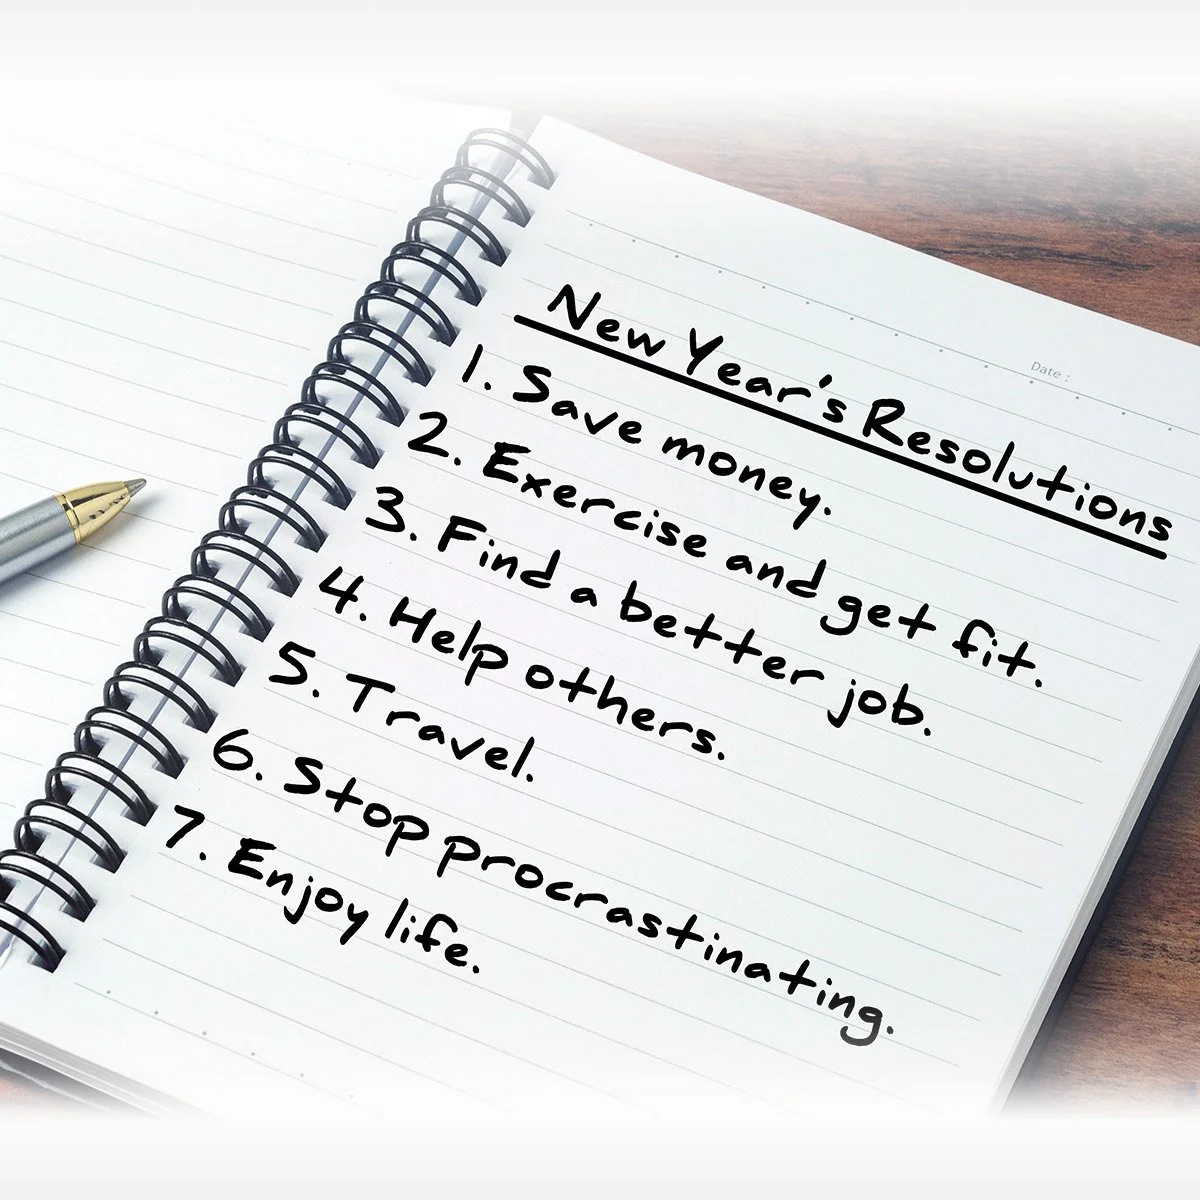 Date :
New Year's Resolutions
1. Save money.
2. Exercise and get fit.
3. Find a better job.
4. Help others.
5. Travel.
6. Stop procrastinating.
7. Enjoy life.